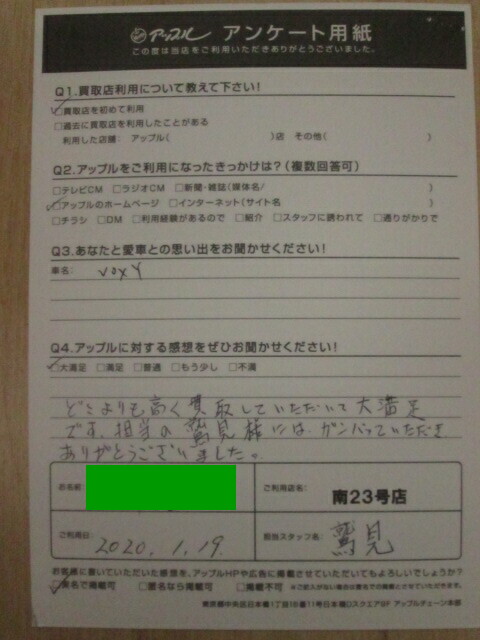 アップル アンケート用紙
この度は当店をご利用いただきありがとうございました。
Q1.買取店利用について教えて下さい!
☑買取店を初めて利用
□過去に買取店を利用したことがある
利用した店舗: アップル( )店 その他( )
Q2.アップルをご利用になったきっかけは?(複数回答可)
□テレビCM □ラジオCM □新聞・雑誌(媒体名/ )
☑アップルのホームページ □インターネット(サイト名 )
□チラシ □DM □利用経験があるので □紹介 □スタッフに誘われて □通りがかりで
Q3.あなたと愛車との思い出をお聞かせください!
車名: VOXY
Q4.アップルに対する感想をぜひお聞かせください!
☑大満足 □満足 □普通 □もう少し □不満
どこよりも高く買取していただいて大満足
です。担当の鷲見様には、ガンバっていただき
ありがとうございました。
お名前
ご利用店名: 南23号店
ご利用日: 2020.1.19.
担当スタッフ名: 鷲見
お客様に書いていただいた感想を、アップルHPや広告に掲載させていただいてもよろしいでしょうか?
☑実名で掲載可 □匿名なら掲載可 □掲載不可 ※ご記入がない場合は匿名での掲載とさせていただきます。
東京都中央区日本橋1丁目16番11号日本橋Dスクエア9F アップルチェーン本部